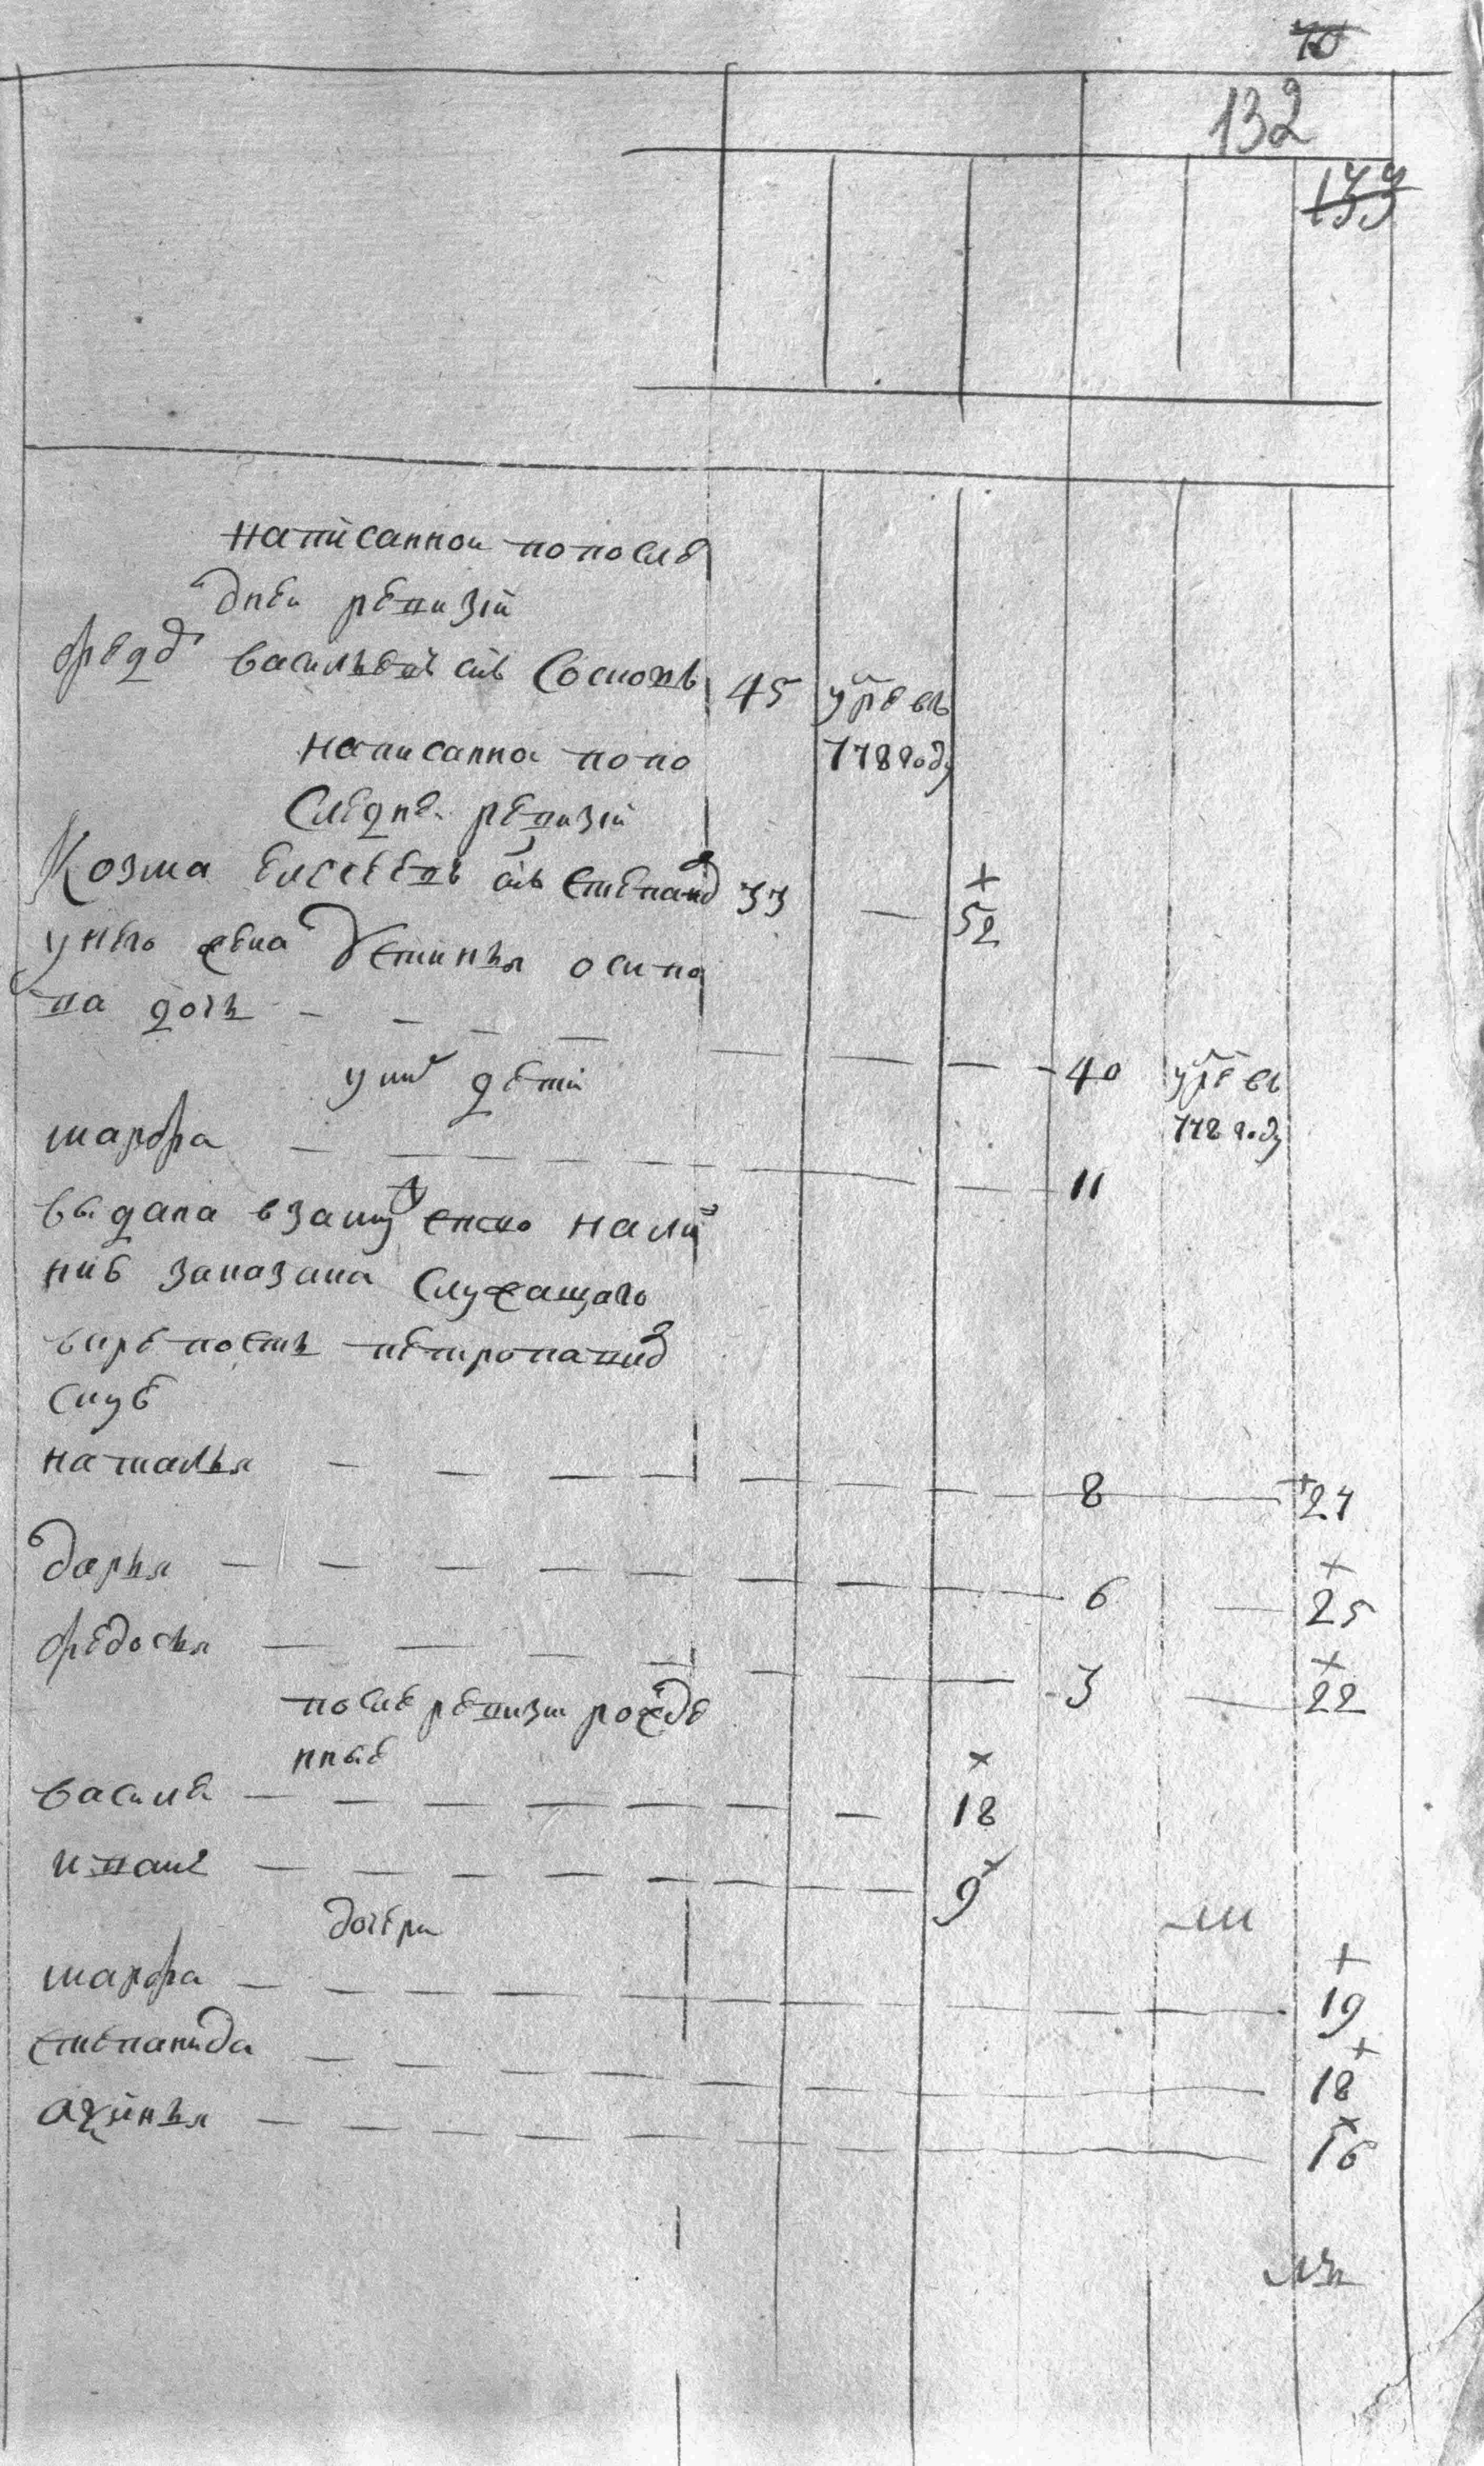 70
132
133
написанной попослѣ
дней ревизіи
Федоръ васильевъ снъ Сосновъ 45 умре въ
778 году
написанной попо
следней ревизіи
Козма елсеевъ снъ степанов 33 — 52
унего жена Устинья осипо
ва дочь — — — — — — — 40 умре въ
778 году
уних дети
марфа — — — — — — 11
выдана взамужество нали
нию заказака служащаго
вкрепость петропавлов
скую
наталья — — — — — — 8 — 24
дарья — — — — — — 6 — 25
федосья — — — — — — 3 — 22
после ревизии рожде
нные
василей — — — — — — 18
иванъ — — — — — — 9
дочери
марфа — — — — — — 19
степанида — — — — — — 18
аксинья — — — — — — 16